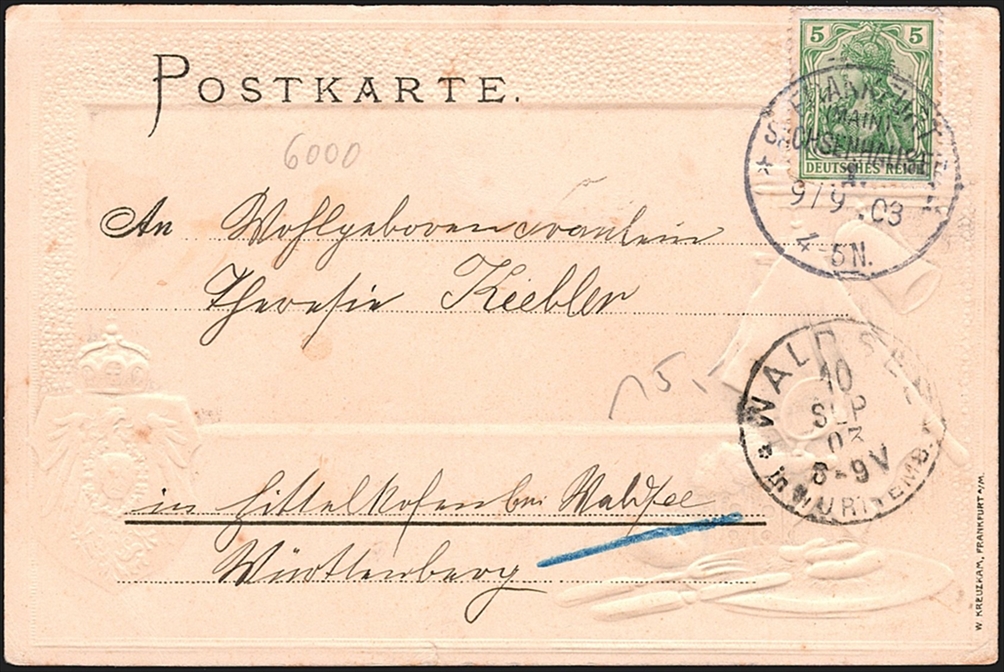 POSTKARTE.
5 5
DEUTSCHES REICH
FRANKFURT
(MAIN)
SACHSENHAUSEN
1.
9/9.03
4-5N.
6000
An Wohlgeboren Fräulein
Theresie Kiebler
15,-
WALDSEE
10
SEP
03
8-9V
in WÜRTTEMB.
in Hittelkofen bei Waldsee
Württenberg
W. KREUZKAM, FRANKFURT A/M.